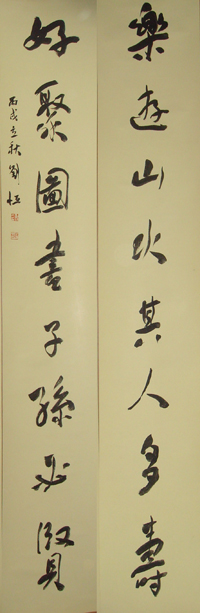 樂遊山水其人多壽
好聚圖書子孫必賢
丙戌立秋劉恒